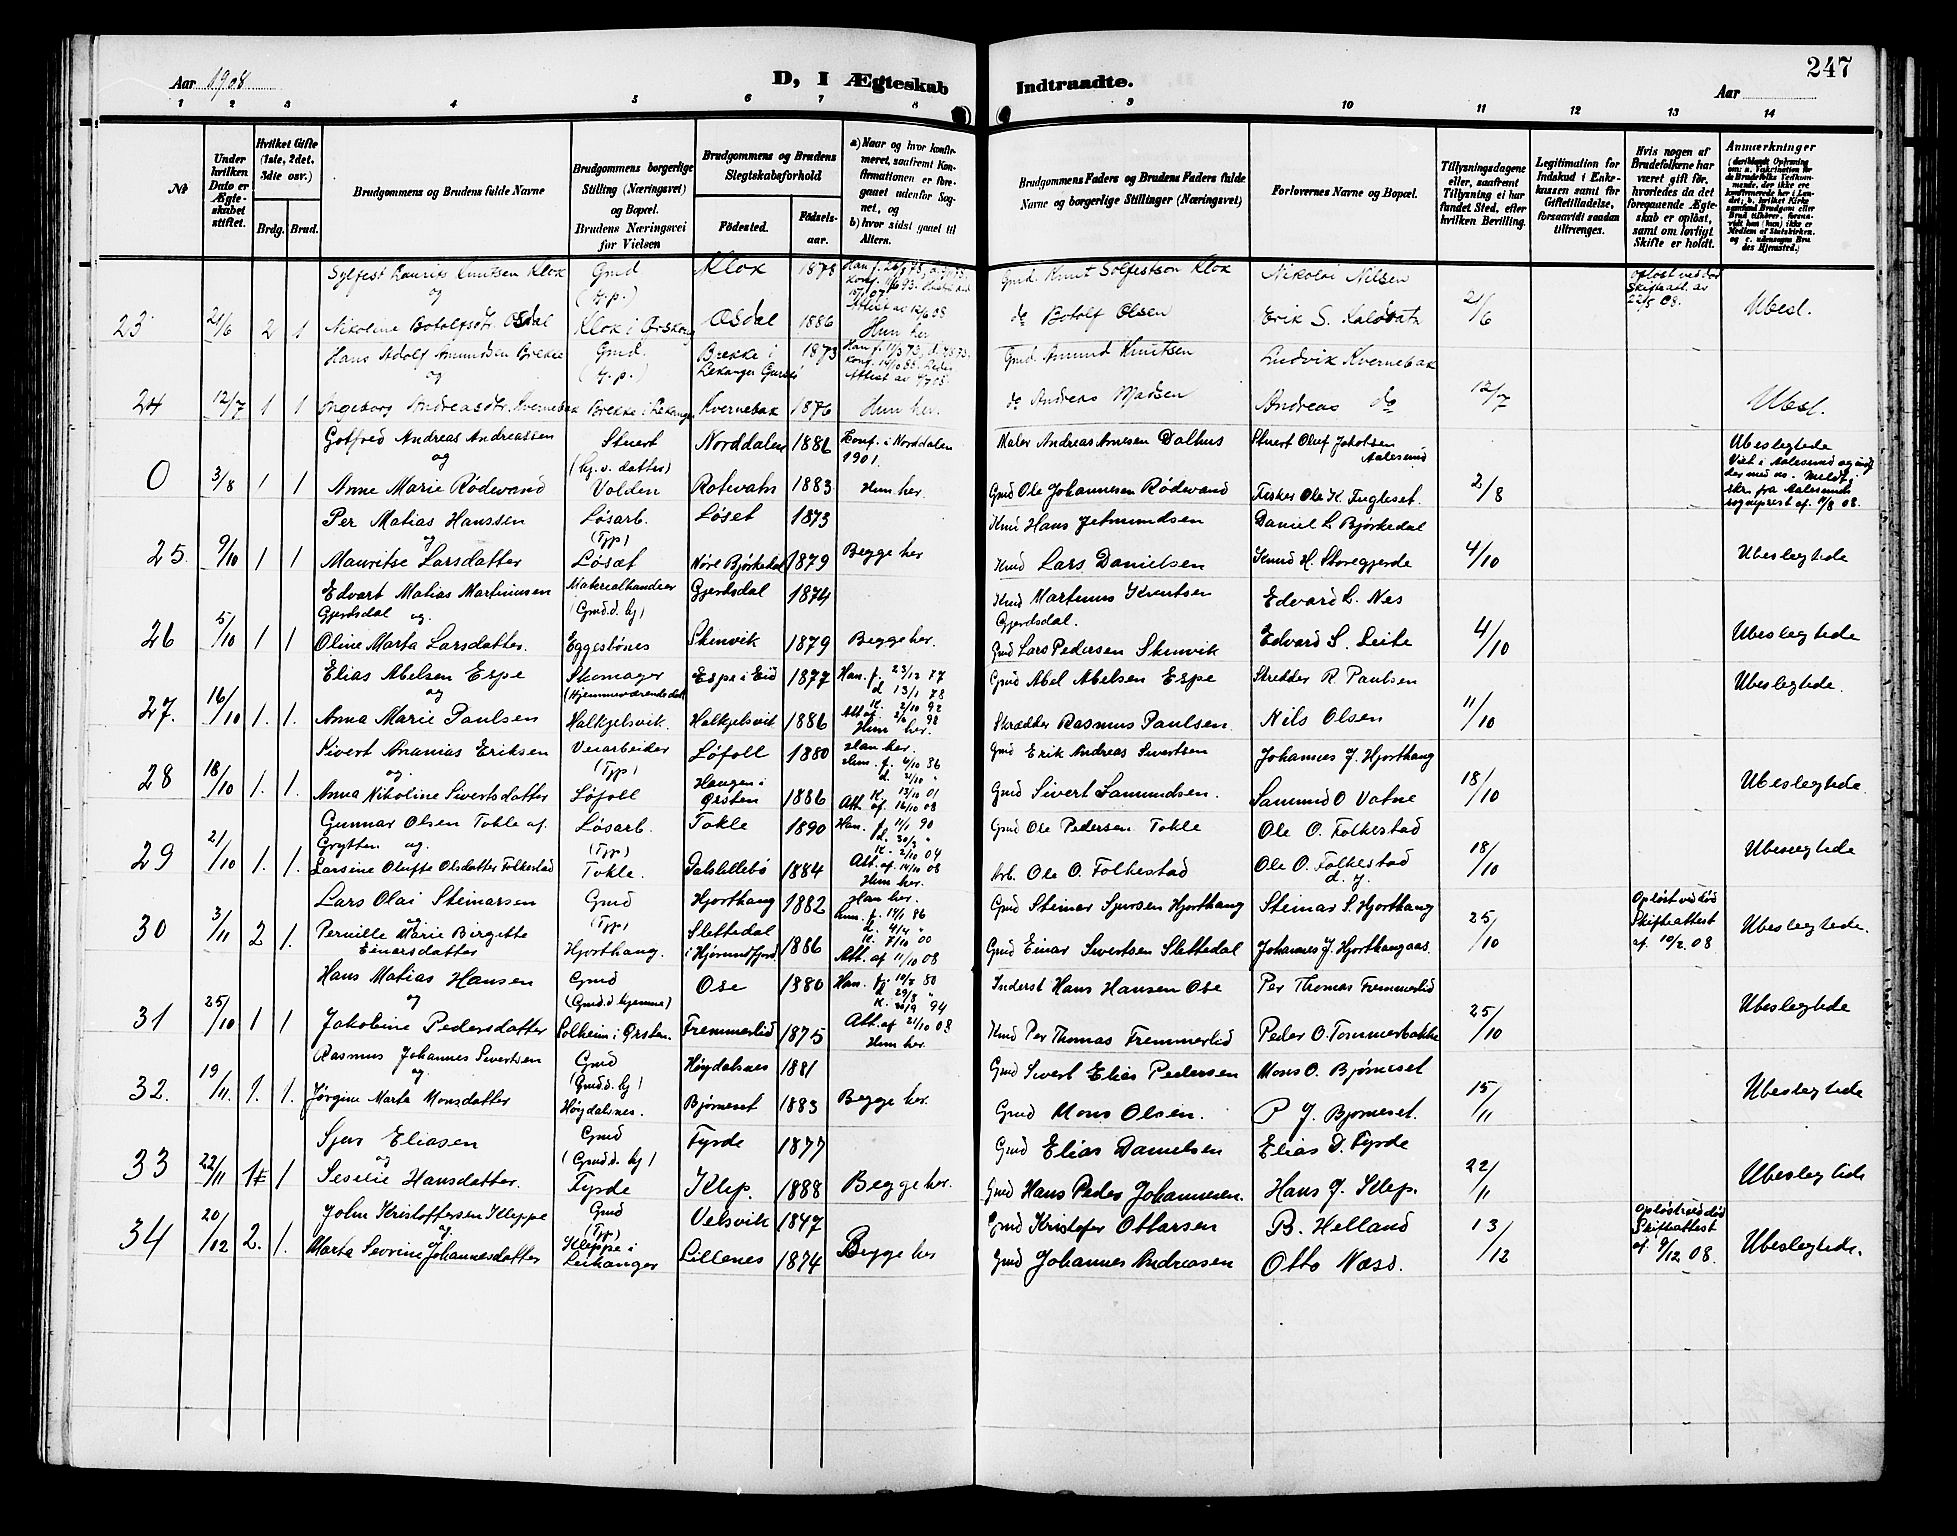 247
Aar 1908
D, I Ægteskab Indtraadte.
Aar
1 2 3 4 5 6 7 8 9 10 11 12 13 14
№
Under hvilken Dato er Ægteskabet stiftet.
Hvilket Gifte (1ste, 2det, 3die osv.)
Brdg. Brud.
Brudgommens og Brudens fulde Navne
Brudgommens borgerlige Stilling (Næringsvei) og Bopæl. Brudens Næringsvei før Vielsen
Brudgommens og Brudens Slegtskabsforhold
Fødested. Fødselsaar.
a) Naar og hvor konfirmeret, saafremt Konfirmationen er foregaaet udenfor Sognet, og
b) hvor sidst gaaet til Altern.
Brudgommens Faders og Brudens Faders fulde Navne og borgerlige Stillinger (Næringsvei)
Forlovernes Navne og Bopæl.
Tillysningsdagene eller, saafremt Tillysning ei har fundet Sted, efter hvilken Bevilling.
Legitimation for Indskud i Enkekassen samt for Giftetilladelse, forsaavidt saadan tiltrænges.
Hvis nogen af Brudefolkene har været gift før, hvorledes da det foregaaende Ægteskab er opløst, samt om lovligt Skifte er holdt.
Anmærkninger
Sylfest Knutsen Klox Gmd Klox 1878 Gmd. Knut Solfestson Klox Nikolai Nilsen
og
23 21/6 2 1 Nikoline Botolfsdtr. Osdal Klox i Ørskog Osdal 1886 Hun her do Botolf Olsen Erik S. 21/6 22/5 08. Ubesl.
Hans Adolf Amundsen Brekke Gmd. Brekke i 1873 Gmd. Amund Knutsen Ludvik Kvernebak
og
24 12/7 1 1 Ingeborg Andreasdtr. Kvernebak Kvernebak 1876 Hun her. do Andreas Madsen Andreas do 12/7 Ubesl.
Gotfred Andreas Andreassen Stuert Norddalen 1881 Konf. i Norddalen 1901. Maler Andreas Arnesen Dalhus Stuert Oluf Jakobsen Aalesund Ubeslegtede
og
0 3/8 1 1 Anne Marie Rødevand Volden Rotevatn 1883 Hun her. Gmd Ole Johannesen Rødevand Fisker Ole K. Fugleset. 2/8
Per Matias Hanssen Løsarb. Løset 1873 Hans Jetmundsen Daniel L. Bjørkedal
og (Tjp)
25. 9/10 1 1 Mauritse Larsdatter Løset Nore Bjørkedal 1879 Begge her Lars Danielsen Knud H. Storegjerde 4/10 Ubeslegtede
Edvart Matias Martinusen Materialhandler Gjerdsdal 1874 Martinus Knutsen Edvard L. Nes
Gjerdsdal og. (Gmd.d. hj) Gjerdsdal.
26 5/10 1 1 Oline Marta Larsdatter. Eggesbønes Stenvik 1879 Begge her. Gmd Lars Pedersen Stenvik Edvard S. Leite 4/10 Ubeslegtede
Elias Abelsen Espe Skomager Espe i Eid 1877 Han. f. 23/12 77 d 13/1 78 Gmd Abel Abelsen Espe Skredder R. Paulsen Ubeslegtede.
og
27. 16/10 1. 1. Anna Marie Paulsen Halkjelsvik. Halkjelsvik 1886 Hun her. Skrædder Rasmus Paulsen. Nils Olsen 11/10
Sivert Ananias Eriksen Veiarbeider Løfoll 1880 Han her. Gmd Erik Andreas Sivertsen Johannes J. Hjorthaug
og. (Tjp) Haugen i
28 18/10 1. 1. Anna Nikoline Sivertsdatter Løfoll Ørsten 1886 Att. af. 16/10 08 Gmd Sivert Samundsen. Samund O Vatne 18/10 Ubeslegtede.
Gunnar Olsen Tokle af. Løsarb. Tokle 1890 Gmd Ole Pedersen Tokle Ole O. Folkestad
Grytten og. (Tjp)
29 21/10 1. 1. Larsine Olufte Olsdatter Folkestad Tokle. 1884 Att. af. 14/10 08 Hun her. Arb. Ole O. Folkestad Ole O. Folkestad d. y. 18/10 Ubeslegtede
Lars Olai Steinarsen Gmd Hjorthaug 1882 Han her. Gmd Steinar Sjursen Hjorthaug Steinar S. Hjorthaug Opløst ved død
og (Tjp) Slettedal Skifteattest
30 3/11 2 1. Pernille Marie Birgitte Einarsdatter Hjorthaug. i Hjørundfjord 1886 Att. af 11/10 08 Gmd Einar Sivertsen Slettedal Johannes J. Hjorthaugaas. 25/10 af. 10/2. 08 Ubeslegtede.
Hans Matias Hansen Gmd Ose 1880 Inderst Hans Hansen Ose Per Thomas Fremmerlid
og (Gmd.d. hjemme)
31 25/10 1 1 Jakobine Pedersdatter Solheim i Ørsten. Fremmerlid 1875 Att. af 21/10 08 Hun her. Per Thomas Fremmerlid Peder O. Tommerbakke 25/10 Ubeslegtede
Rasmus Johannes Sivertsen Gmd Høydalsnes 1881 Gmd Sivert Elias Pedersen Mons O. Bjørneset
og (Gmd.d. hj)
32. 19/11. 1. 1. Jørgine Marta Monsdatter Høydalsnes. Bjørneset 1883 Begge her. Gmd Mons Olsen. P. J. Bjørneset. 15/11 Ubeslegtede
Sjur Eliasen Gmd Fyrde 1877 Gmd Elias Danielsen Elias D. Fyrde
og (Gmd.d. hj)
33 22/11 1 1 Seselie Hansdatter. Fyrde Klep. 1888 Begge her. Gmd Hans Peder Johannesen. Hans J. Klep. 22/11 Ubeslegtede
John Kristoffersen Kleppe Gmd Velsvik 1847 Gmd Kristofer Ottarsen B. Helland opløst ved død
og. (Tjp) Kleppe i Skifteattest
34 20/12 2. 1. Marta Sevrine Johannesdatter Leikanger Lillenes 1874 Begge her Gmd Johannes Andreasen Otto Næss. 13/12 af. 9/12 08. Ubeslegtede.